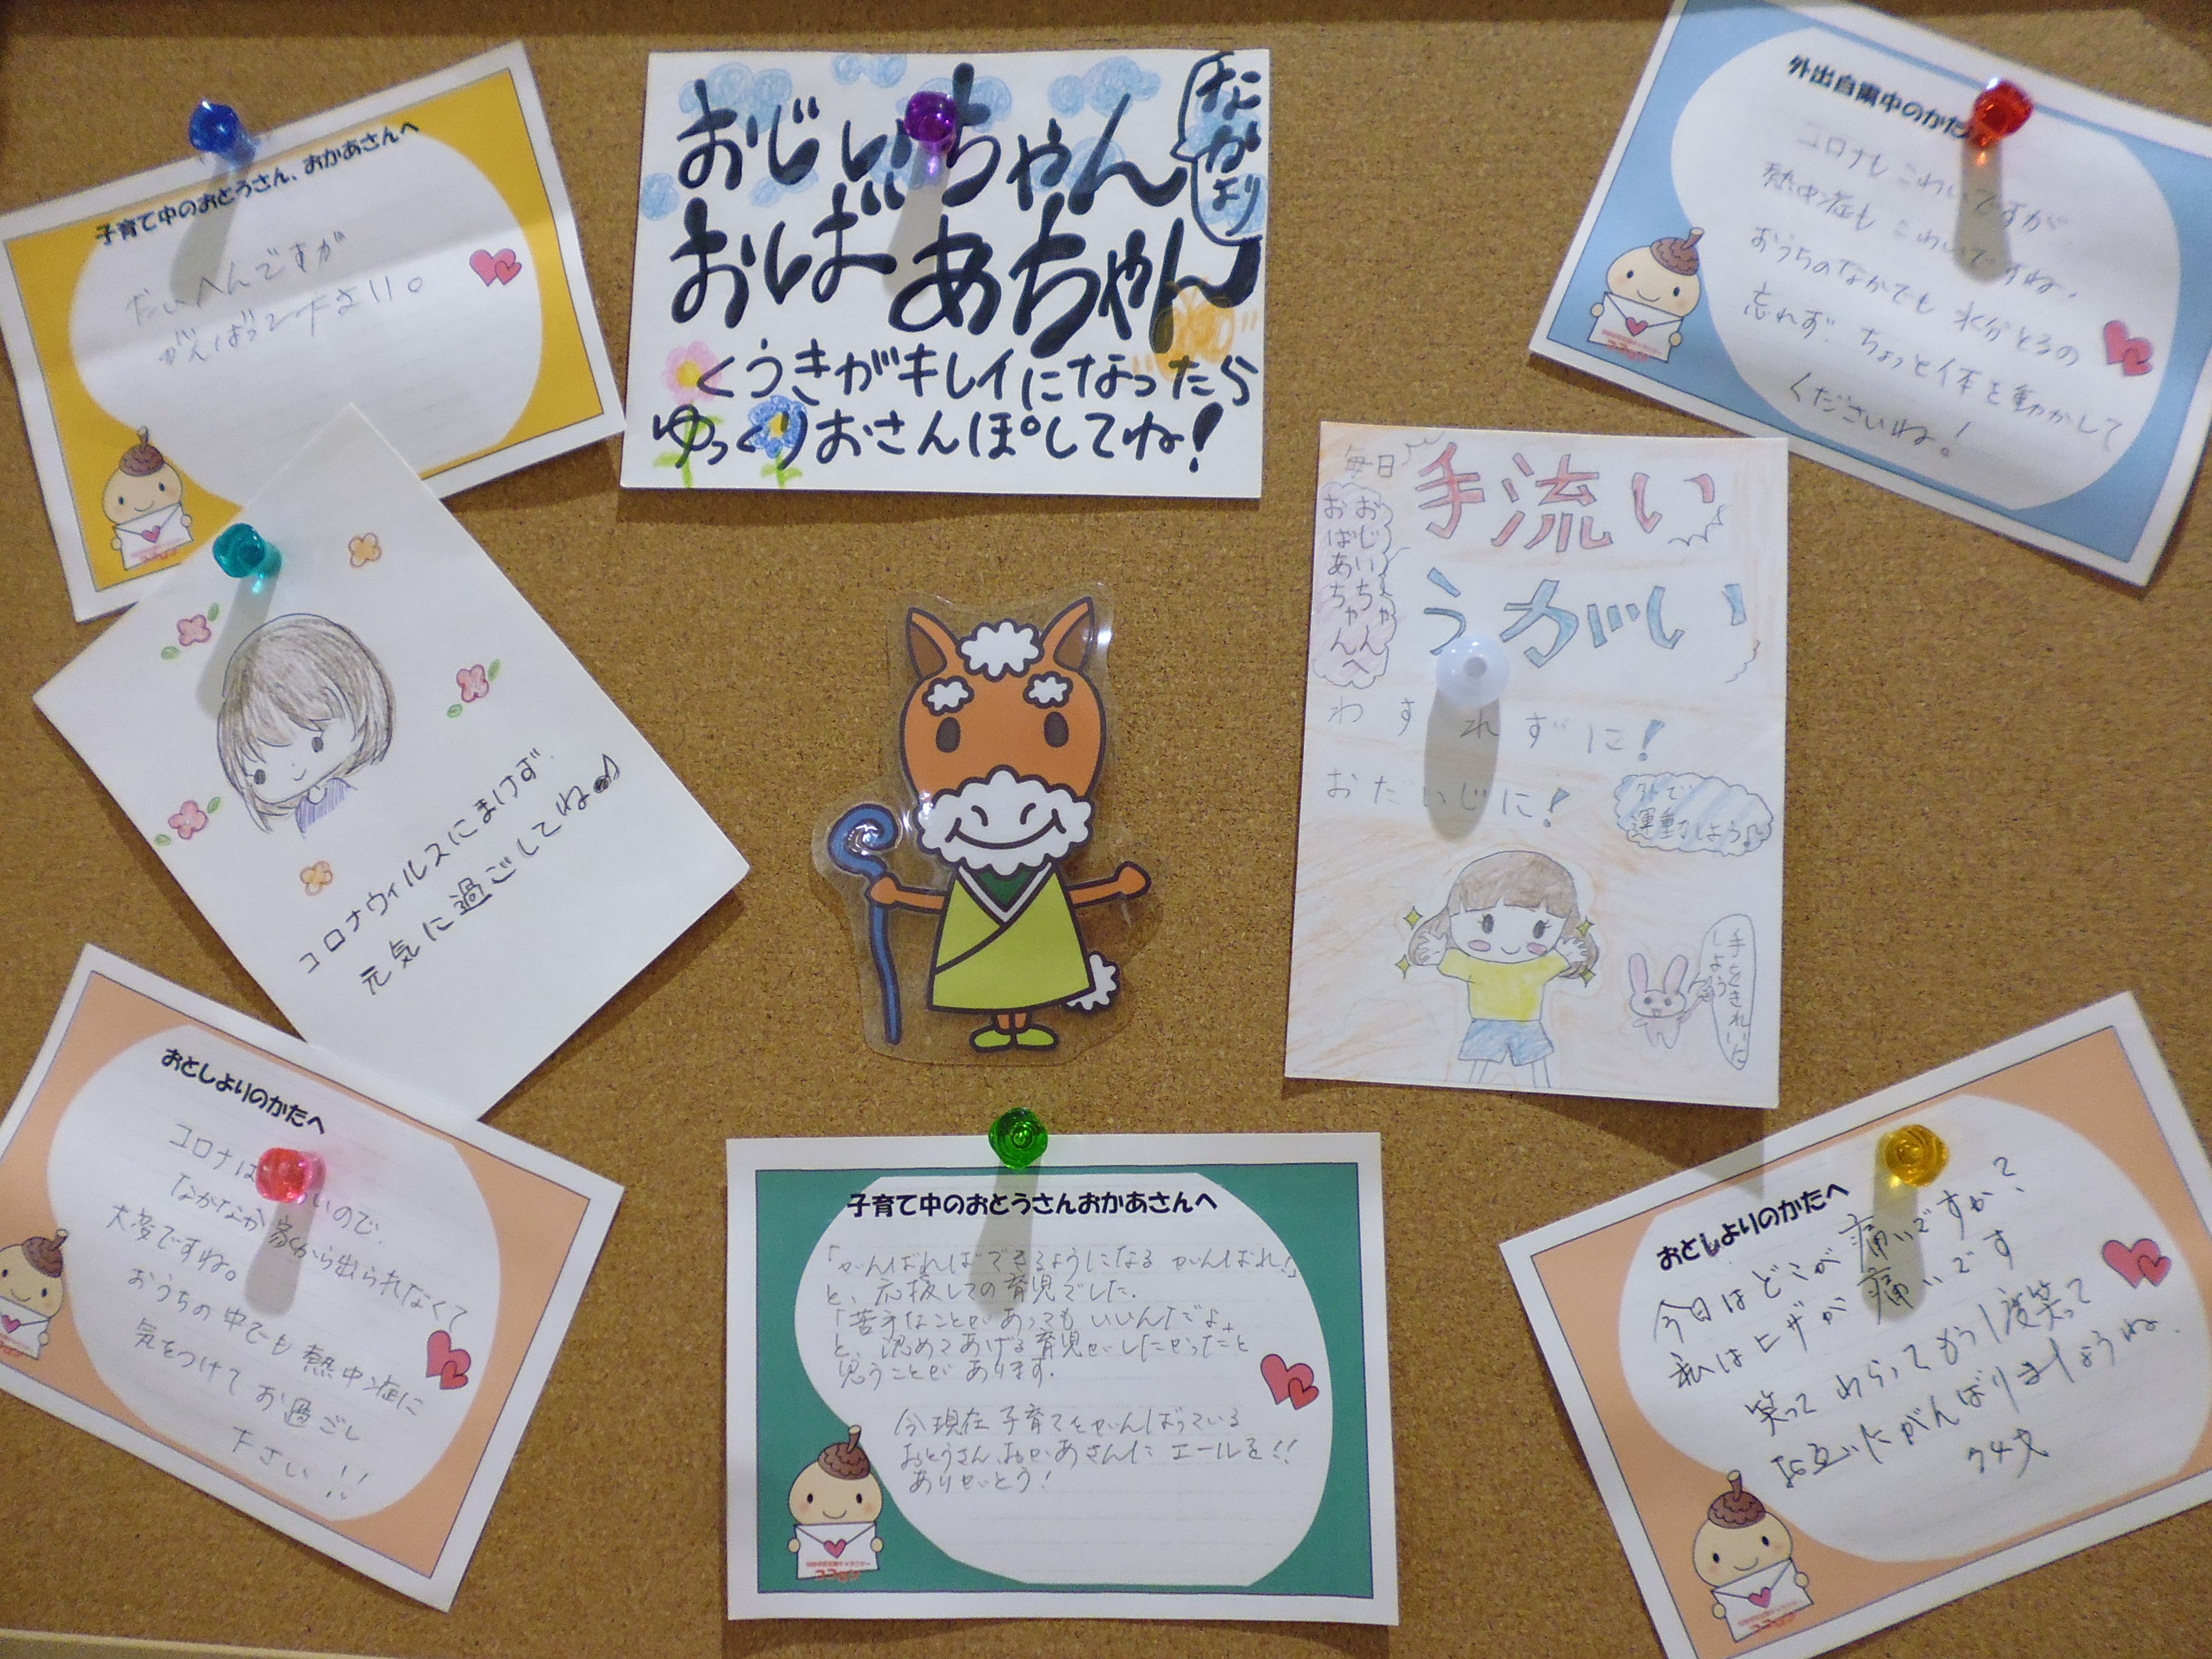 子育て中のおとうさん、おかあさんへ
たいへんですが
がんばって下さい。
おじいちゃん
おばあちゃん
くうきがキレイになったら
ゆっくりおさんぽしてね!
なかより
外出自粛中のかた
コロナもこわいですが
熱中症もこわいですね。
おうちのなかでも水分とるの
忘れず、ちょっと体を動かして
くださいね!
コロナウィルスにまけず、
元気に過ごしてね♪
毎日
手流い
うがい
おじいちゃん
おばあちゃんへ
わすれずに!
おだいじに!
外で
運動しよう♪
手をきれいに
しよう
おとしよりのかたへ
コロナは いので、
なかなか家から出られなくて
大変ですね。
おうちの中でも熱中症に
気をつけてお過ごし
下さい!!
子育て中のおとうさんおかあさんへ
「がんばればできるようになる がんばれ!」
と、応援しての育児でした。
「苦手なことがあってもいいんだよ」
と、認めてあげる育児がしたかったと
思うことがあります。
今現在子育てをがんばっている
おとうさん、おかあさんに エールを!!
ありがとう!
おとしよりのかたへ
今日はどこが痛いですか?
私はヒザが痛いです
笑って わらって もう1度笑って
お互いにがんばりましょうね。